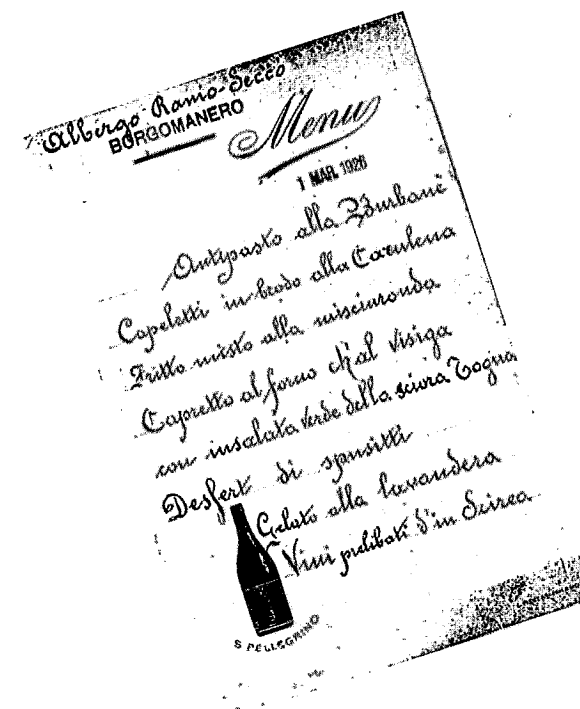 Albergo Ramo-Secco
BORGOMANERO
Menu
1 MAR. 1926
Antipasto alla Burbanè
Capeletti in brodo alla Carulena
Fritto misto alla misciuronda
Capretto al forno ch'al visiga
con insalata verde della sciura Togna
Desfert di spusitti
Gelato alla lavandera
Vini prelibati d'in Scirea
S. PELLEGRINO